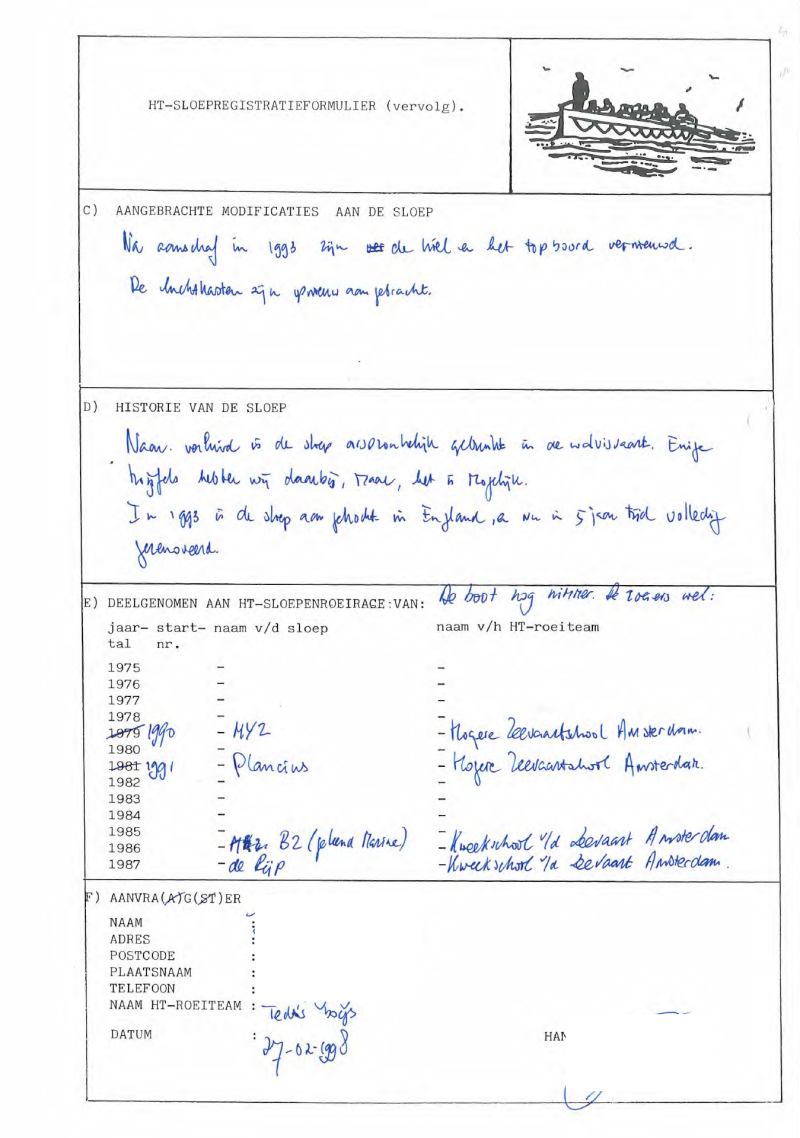 HT-SLOEPREGISTRATIEFORMULIER (vervolg).
C) AANGEBRACHTE MODIFICATIES AAN DE SLOEP
Na aanschaf in 1993 zijn de hiel en het topboord vernieuwd.
De luchtkasten zijn opnieuw aangebracht.
D) HISTORIE VAN DE SLOEP
Naar verluid is de sloep oorspronkelijk gebruikt in de walvisvaart. Enige
twijfels hebben wij daarbij, maar, het is mogelijk.
In 1993 is de sloep aangekocht in England, en nu in 5 jaar tijd volledig
gerenoveerd.
E) DEELGENOMEN AAN HT-SLOEPENROEIRACE:VAN: De boot nog nimmer. de roeiers wel:
jaar- start- naam v/d sloep naam v/h HT-roeiteam
tal nr.
1975 - -
1976 - -
1977 - -
1978 - -
1979 1990 - HYZ - Hogere Zeevaartschool Amsterdam.
1980 - -
1981 1991 - Plancius - Hogere Zeevaartschool Amsterdam.
1982 - -
1983 - -
1984 - -
1985 - -
1986 - B2 (geleend Marine) - Kweekschool v/d Zeevaart Amsterdam
1987 - de Rijp - Kweekschool v/d Zeevaart Amsterdam.
F) AANVRA(A)G(ST)ER
NAAM :
ADRES :
POSTCODE :
PLAATSNAAM :
TELEFOON :
NAAM HT-ROEITEAM :
DATUM : 27-02-1998 HAN